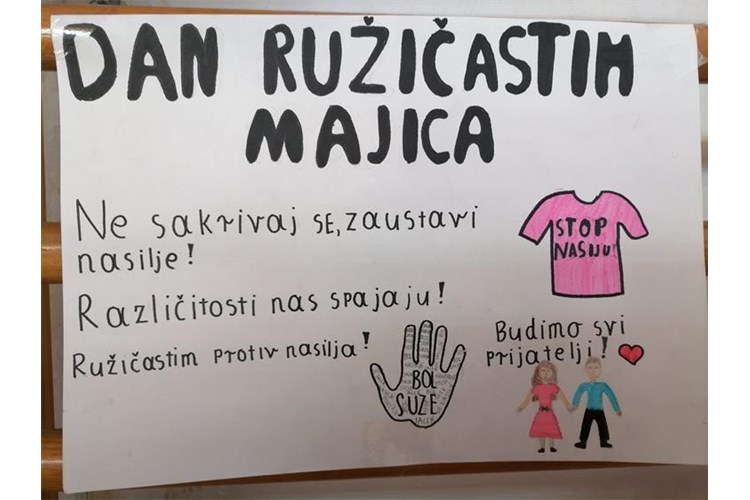 DAN RUŽIČASTIH
MAJICA
Ne sakrivaj SE, zaustavi
nasilje!
Različitosti nas spajaju!
Ružičastim protiv nasilja!
STOP
NASIJU!
Budimo svi
prijatelji!
BOL
SUZE